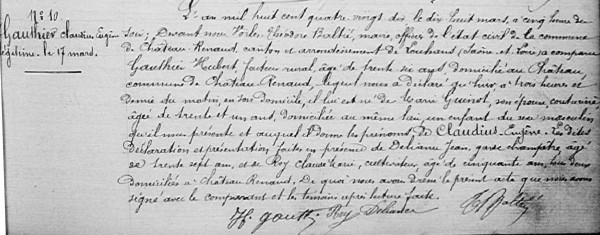 N° 10
Gauthier Claudius Eugène
légitime le 17 mars.
L'an mil huit cent quatre vingt dix, le dix huit mars, à cinq heures du
soir; Devant nous Eléodore maire, officier de l'état civil de la commune
de Château-Renaud, canton et arrondissement de Louhans (Saône et Loire) a comparu
Gauthier Hubert, facteur rural, âgé de trente six ans, domicilié au Château,
commune de Château Renaud, lequel nous a déclaré qu'hier à trois heures et
demie du matin, en son domicile, il lui est né de Marie Guinot, son épouse couturière
âgée de trente et un ans, domiciliée au même lieu, un enfant du sexe masculin
qu'il nous présente et auquel il donne les prénoms de Claudius-Eugène. Les dites
déclaration et présentation faites en présence de Jean, garde champêtre, âgé
de trente sept ans, et de Roy Claude Marie, cultivateur, âgé de cinquante ans, tous deux
domiciliés à Château Renaud. De quoi nous avons dressé le présent acte que nous avons
signé avec le comparant et les témoins après lecture faite.
H. Gauth Roy